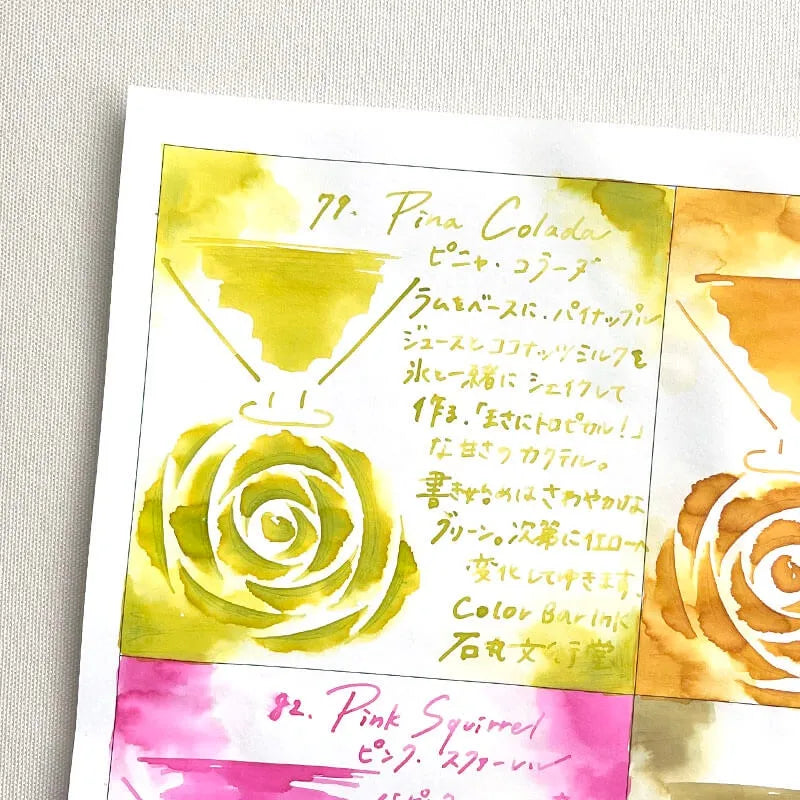 79. Pina Colada
ピニャ・コラーダ
ラムをベースに、パイナップル
ジュースとココナッツミルクを
氷と一緒に シェイクして
作る、「まさにトロピカル！」
な甘さのカクテル。
書き始めはさわやかな
グリーン。次第にイエローへ
変化してゆきます。
Color Bar Ink
石丸文行堂
82. Pink Squirrel
ピンク・スクァーレル